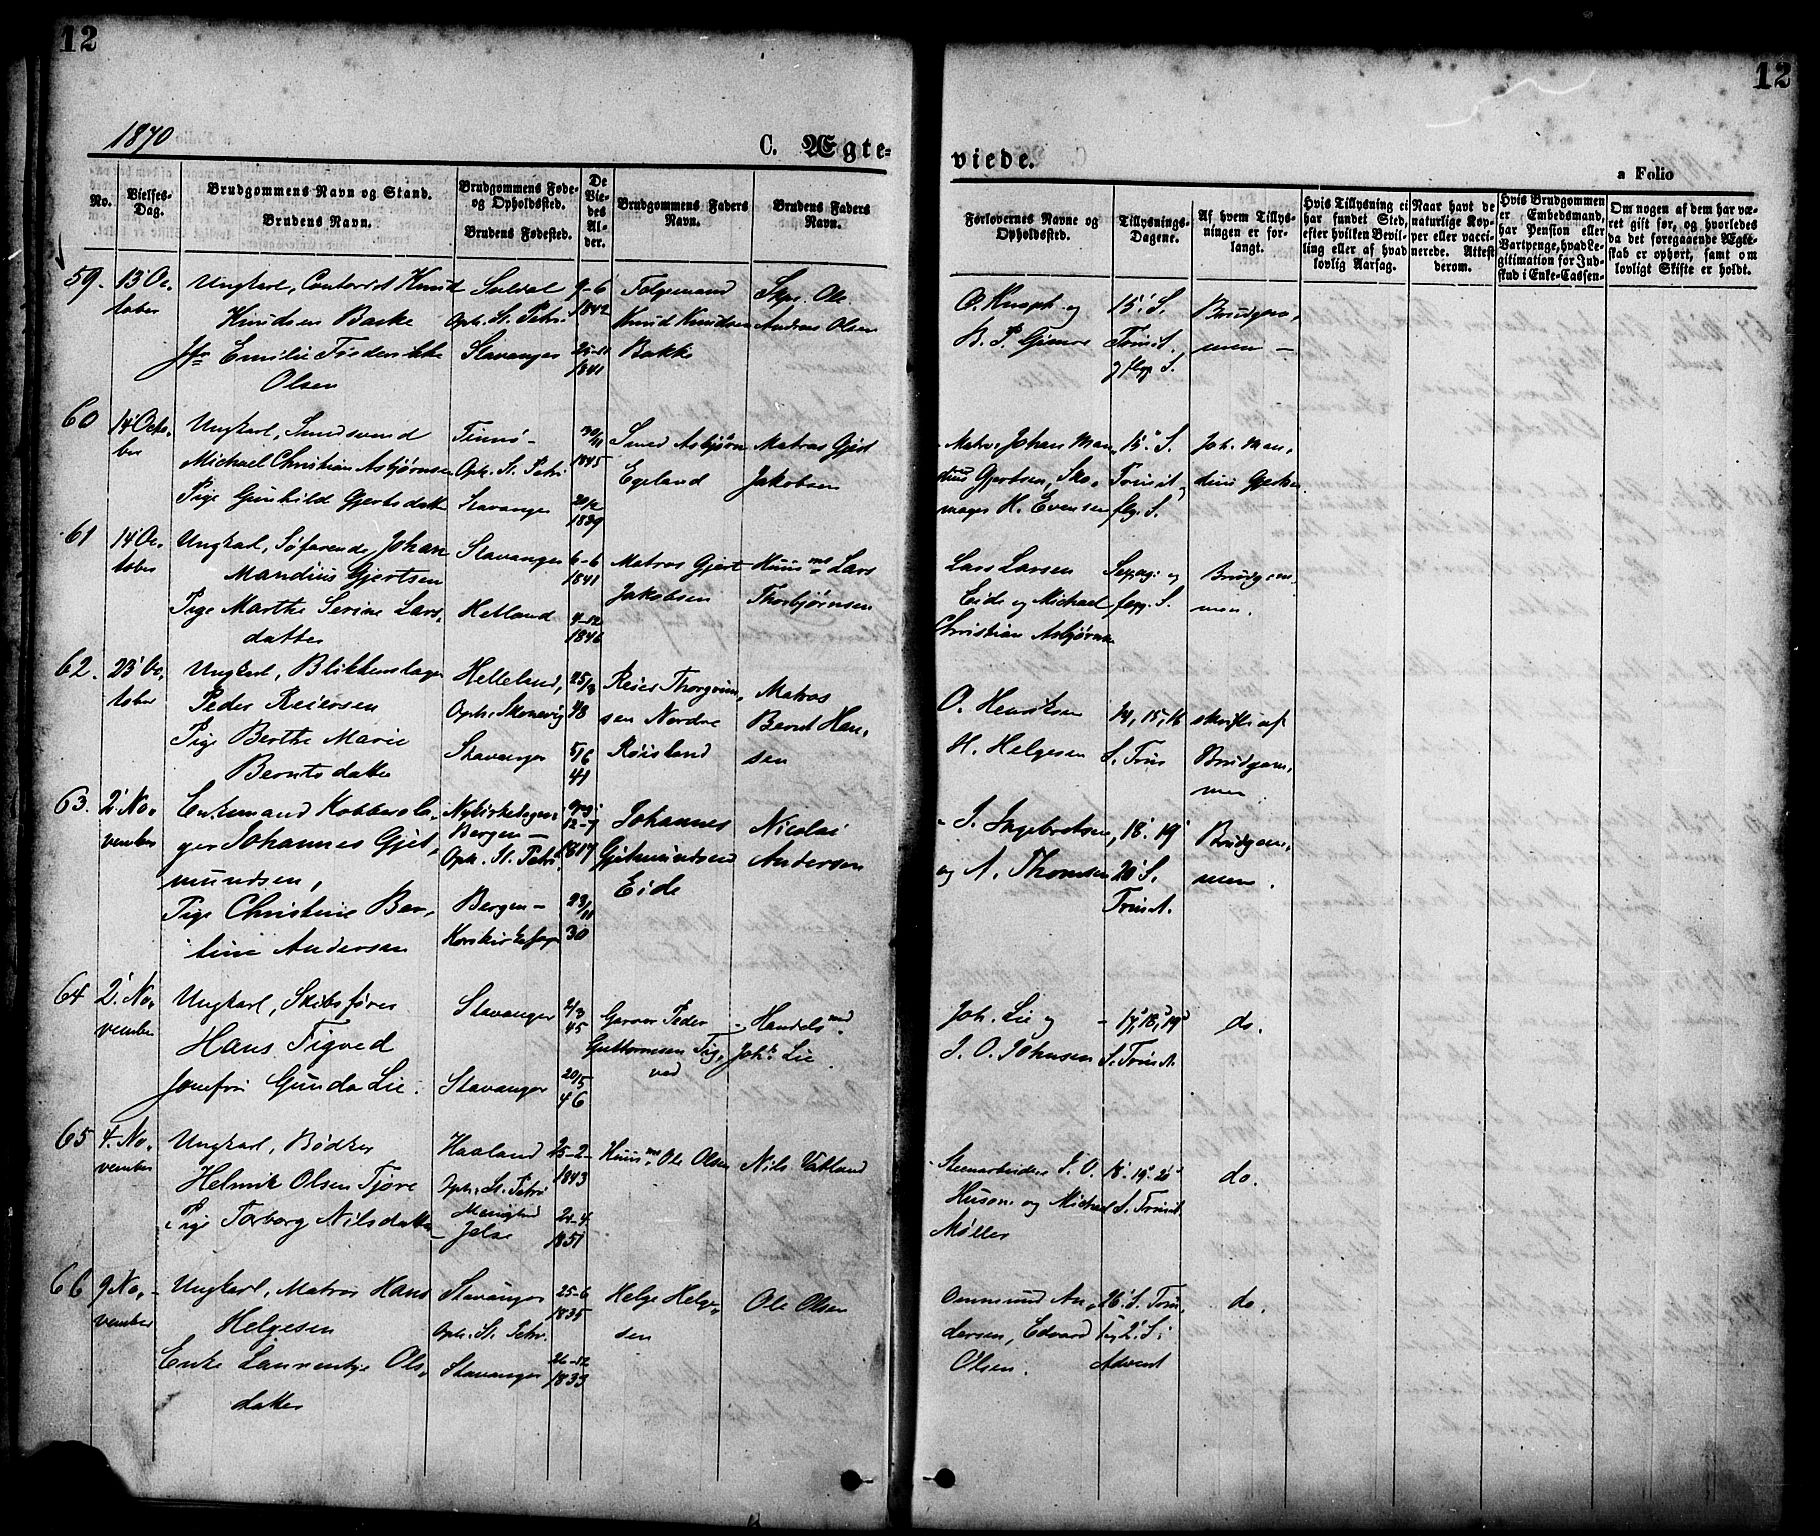 12
12
1870
C. Ægte-
viede.
a Folio
No.
Vielses-
Dag.
Brudgommens Navn og Stand.
Brudens Navn.
Brudgommens Føde-
og Opholdssted.
Brudens Fødested.
De
Vie-
des
Al-
der.
Brudgommens Faders
Navn.
Brudens Faders
Navn.
Forlovernes Navne og
Opholdssted.
Tillysnings-
Dagene.
Af hvem Tillys-
ningen er for-
langt.
Hvis Tillysning ei
har fundet Sted,
efter hvilken Bevil-
ling eller af hvad
lovlig Aarsag.
Naar havt de
naturlige Kop-
per eller vacci-
nerede. Attest
derom.
Hvis Brudgommen
er Embedsmand,
har Pension eller
Vartpenge, hvad Le-
gitimation for Ind-
skud i Enke-Cassen.
Om nogen af dem har væ-
ret gift før, og hvorledes
da det foregaaende Ægte-
skab er ophørt, samt om
lovligt Skifte er holdt.
59. 13 Oc-
tober
Ungkarl, Contorist Knud
Knudsen Bakke
Jfr Emilie Frederikke
Olsen
Oph. St. Petri
Stavanger
9-6
1842
1841
Knud Knudsen
Bakke
Skpr. Ole
Andreas Olsen
15' S.
Trinit.
flgg. S.
Brudgom-
men -
60 14 Octo-
ber
Ungkarl, Smedsvend
Michael Christian Asbjørnsen
Pige Gunhild Gjertsdatter
Oph. St. Petri
Stavanger
30/11
1845
20/2
1839
Smed Asbjørn
Egeland
Matros Gjert
Jakobsen
Matr. Johan Man-
dius Gjertsen, Sko-
mager H. Evensen
15' S.
Trinit.
flg. S.
Joh. Man-
dius Gjertsen
61 14' Oc-
tober
Ungkarl, Søfarende, Johan
Mandius Gjertsen
Pige Marthe Serine Lars-
datter
Stavanger
Hetland
6-6
1841
4-12
1846
Matros Gjert
Jakobsen
Huusmd Lars
Thorbjørnsen
Lars Larsen
Eide og Michael
Christian Asbjørns
flgg. S.
Brudgom-
men.
62. 23' Oc-
tober
Ungkarl, Blikkenslager
Peder Reiersen
Pige Berthe Marie
Berntsdatter
Helleland,
Oph. Skonevig
Stavanger
25/3
48
5/6
41
Reier Thorgrim-
sen Nordre
Røisland
Matros
Bernt Han-
sen
O. Henriksen
H. Helgesen
14, 15, 16
S. Trin
skriftl. af
Brudgom-
men.
63. 2' No-
vember
Enkemand Kobbersla-
ger Johannes Gjet-
mundsen,
Pige Christine Ber-
tine Andersen
Bergen -
Oph. St. Petri
Bergen -
Korskirkesogn
12-7
1817
23/11
30
Johannes
Gjetmundsen
Eide
Nicolai
Andersen
I. Ingebretsen
og A. Thomsen
18', 19'
20' S.
Trinit.
Brudgom-
men.
64 2' No-
vember
Ungkarl, Skibsfører
Hans Tigved
Jomfru Gunda Lie.
Stavanger
Stavanger
2/3
45
20/5
46
Garver Peder
Guttormsen Tig-
ved
Handelsmd
Joh. Lie
Joh. Lie og
J. O. Johnsen
17', 18', 19'
S. Trinit.
do.
65 4. No-
vember
Ungkarl, Bødker
Helmik Olsen Tjøre
Pige Torborg Nilsdatter
Haaland
Oph. St. Petri
Jelse
25-2-
1843
24-4
1851
Huusmd Ole Olsen
Nils Vatland
Steenarbeider J. O.
Husone og Michael
Møller
18' 19' 20'
S. Trinit.
do.
66 9 No-
vember
Ungkarl, Matros Hans
Helgesen
Enke Laurentze Ols-
datter
Stavanger
Oph. St. Petri
Stavanger
25-6
1835
26-12
1833
Helge Helge-
sen
Ole Olsen
Ommund An-
dersen, Edvard
Olsen.
26' S. Trin.
1 og 2' S. i
Advent
do.